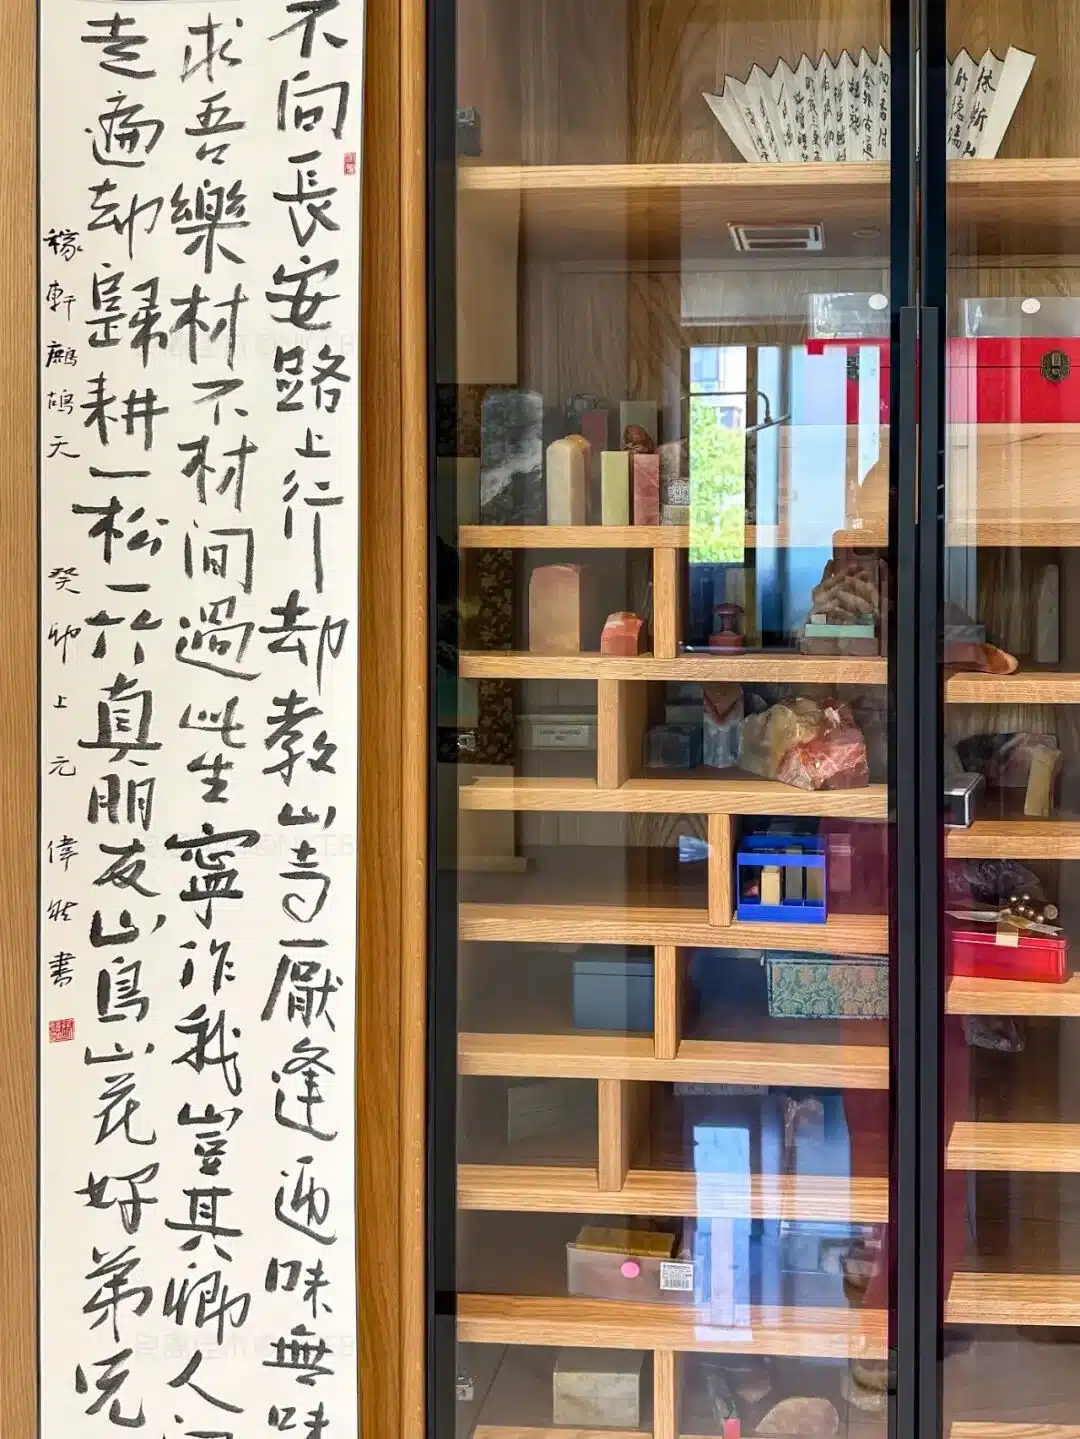 不向長安路上行却教山寺厭逢迎味無味
求吾樂材不材間過此生寧作我豈其卿人間
走遍却歸耕一松一竹真朋友山鳥山花好弟兄
稼軒鷓鴣天 癸卯上元 偉然書